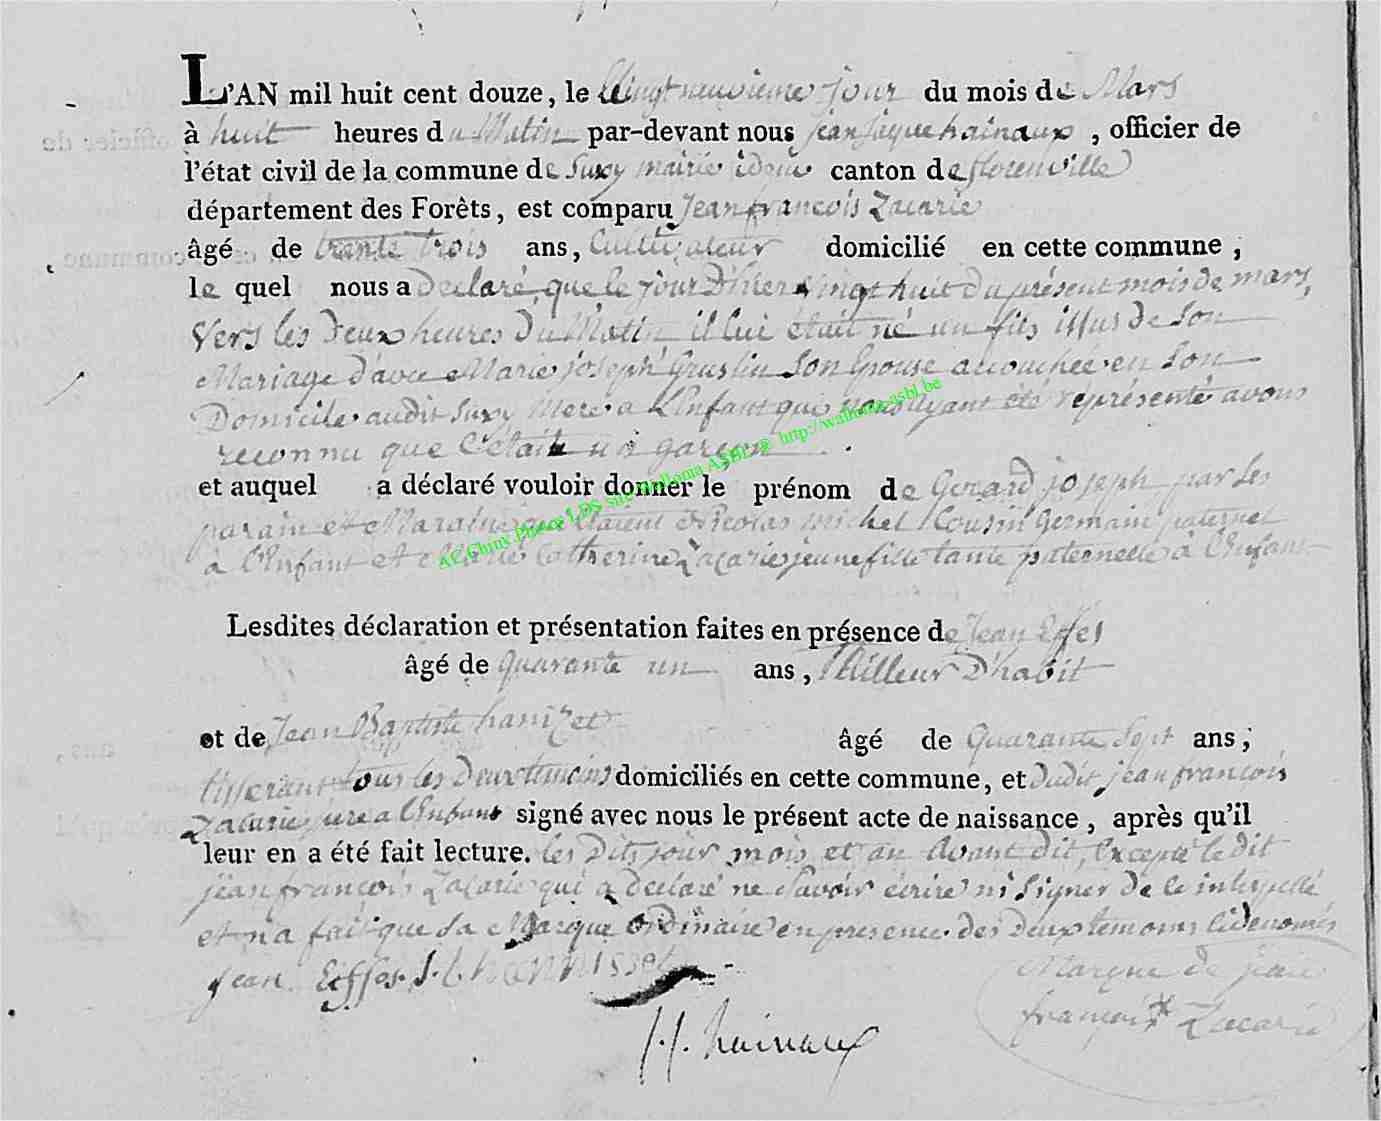 L'AN mil huit cent douze, le Vingt neuvieme jour du mois de Mars
à huit heures du Matin par-devant nous jean jaque hainaux, officier de
l'état civil de la commune de Suxy mairie idem canton de florenville
département des Forêts, est comparu Jean françois Zacarie
âgé de trente trois ans, Cultivateur domicilié en cette commune,
le quel nous a declaré que le jour D'hier vingt huit du présent mois de mars,
vers les deux heures Du Matin il lui était né un fils issus de Son
Mariage d'avec Marie joseph Gruslin Son Epouse accouchée en Son
Domicile audit Suxy Mere a L'Enfant qui nous ayant été représenté avons
reconnu que C'était un garçon
et auquel a déclaré vouloir donner le prénom de Gerard joseph par Les
parain et Maraine qui étaient Nicolas Michel Cousin Germain paternel
à l'Enfant et Marie Catherine Zacarie jeune fille tante paternelle à l'Enfant
AC Chiny Photos LDS site Wallonia ASBL @ http://wallonia-asbl.be
Lesdites déclaration et présentation faites en présence de Jean Effes
âgé de Quarante un ans, Tailleur D'habit
et de Jean Baptiste hanizet âgé de Quarante Sept ans,
tisserant tous les deux temoins domiciliés en cette commune, et dudit jean françois
Zacarie pere a l'Enfant signé avec nous le présent acte de naissance, après qu'il
leur en a été fait lecture. les Dits jour mois et an Avant dit, Excepté le dit
jean françois Zacarie qui a declaré ne Savoir écrire ni Signer de ce interpellé
et n'a fait que Sa Marque ordinaire en presence des deux temoins
Jean Eiffes J. b.
Marque de jean
françois * Zacarie
J. J. hainaux